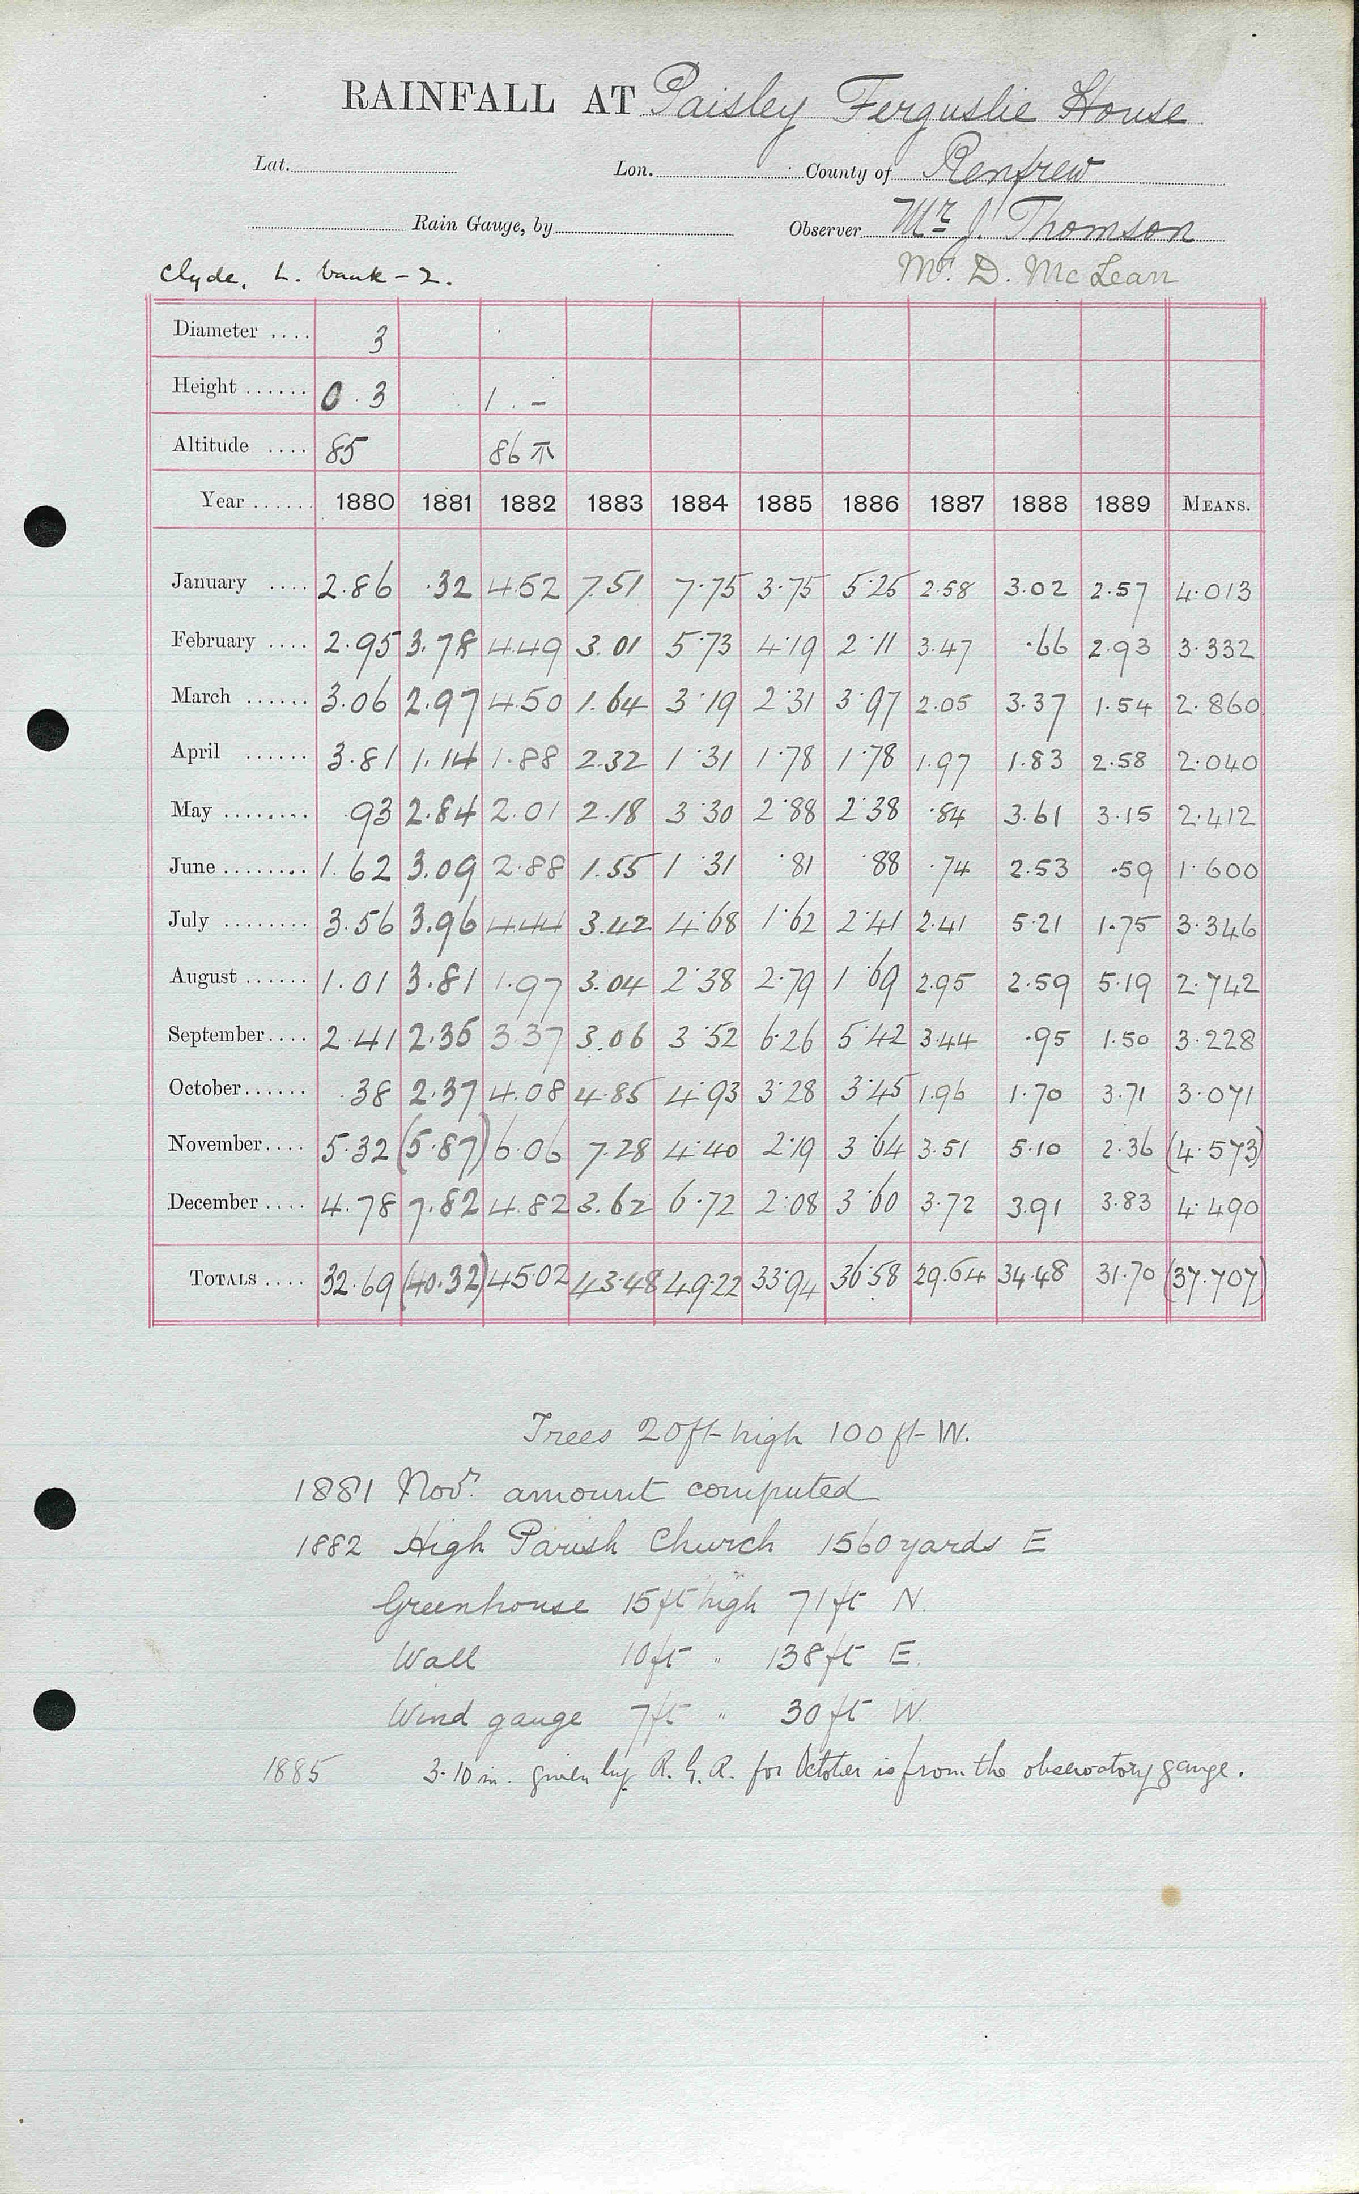 RAINFALL AT Paisley Ferguslie House
Lat. Lon. County of Renfrew
Rain Gauge, by Observer Mr J. Thomson
Clyde, L. bank - 2. Mr. D. McLean
Diameter .... 3
Height ...... 0.3 1.-
Altitude .... 85 86 ⊼
Year ...... 1880 1881 1882 1883 1884 1885 1886 1887 1888 1889 MEANS.
January .... 2.86 .32 4.52 7.51 7.75 3.75 5.25 2.58 3.02 2.57 4.013
February .... 2.95 3.78 4.49 3.01 5.73 4.19 2.11 3.47 .66 2.93 3.332
March ...... 3.06 2.97 4.50 1.64 3.19 2.31 3.97 2.05 3.37 1.54 2.860
April ...... 3.81 1.14 1.88 2.32 1.31 1.78 1.78 1.97 1.83 2.58 2.040
May ........ .93 2.84 2.01 2.18 3.30 2.88 2.38 .84 3.61 3.15 2.412
June ........ 1.62 3.09 2.88 1.55 1.31 .81 .88 .74 2.53 .59 1.600
July ........ 3.56 3.96 4.44 3.42 4.68 1.62 2.41 2.41 5.21 1.75 3.346
August ...... 1.01 3.81 1.97 3.04 2.38 2.79 1.69 2.95 2.59 5.19 2.742
September.... 2.41 2.35 3.37 3.06 3.52 6.26 5.42 3.44 .95 1.50 3.228
October...... .38 2.37 4.08 4.85 4.93 3.28 3.45 1.96 1.70 3.71 3.071
November.... 5.32 (5.87) 6.06 7.28 4.40 2.19 3.64 3.51 5.10 2.36 (4.573)
December.... 4.78 7.82 4.82 3.62 6.72 2.08 3.60 3.72 3.91 3.83 4.490
TOTALS .... 32.69 (40.32) 45.02 43.48 49.22 33.94 36.58 29.64 34.48 31.70 (37.707)
Trees 20ft high 100ft W.
1881 Novr. amount computed
1882 High Parish Church 1560 yards E
Greenhouse 15ft high 71ft N.
Wall 10ft " 138ft E.
Wind gauge 7ft " 30ft W.
1885 3.10 in. given by R. G. R. for October is from the observatory gauge.